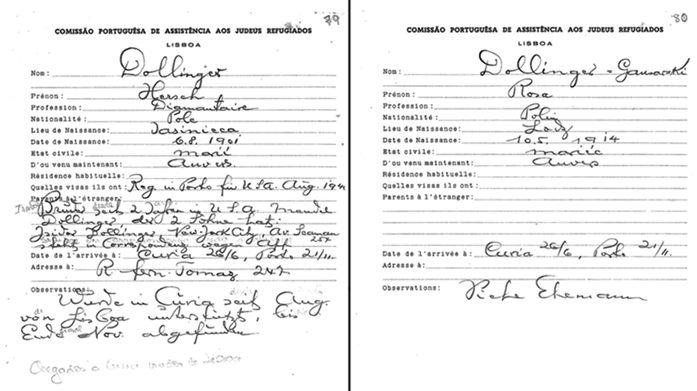 79
COMISSÃO PORTUGUÊSA DE ASSISTÊNCIA AOS JUDEUS REFUGIADOS
LISBOA
Nom: Dollinger
Prénom: Hersch
Profession: Diamantaire
Nationalité: Pole
Lieu de Naissance: Jasinicca
Date de Naissance: 6.8.1901
Etat civile: marié
D'ou venu maintenant: Anvers
Résidence habituelle:
Quelles visas ils ont: Reg. in Porto für USA. Aug. 194
Parents à l'étranger:
Bruder seit 2 Jahren in U.S.A. Mandel
Dollinger der 2 Söhne hat:
Isidor Dollinger New-York City, Av. Seaman 255
steht in Correspondenz wegen Aff
Date de l'arrivée à: Curia 26/6, Porto 21/11.
Adresse à: R. Fern. Tomaz 247
Observations:
Wurde in Curia seit Aug.
von Lisboa unterstützt, bis
Ende Nov. abgefunden
80
COMISSÃO PORTUGUÊSA DE ASSISTÊNCIA AOS JUDEUS REFUGIADOS
LISBOA
Nom: Dollinger - Gawarski
Prénom: Rosa
Profession:
Nationalité: Polin
Lieu de Naissance: Lodz
Date de Naissance: 10.5.1914
Etat civile: mariée
D'ou venu maintenant: Anvers
Résidence habituelle:
Quelles visas ils ont:
Parents à l'étranger:
Date de l'arrivée à: Curia 26/6, Porto 21/11.
Adresse à:
Observations: Siehe Ehemann